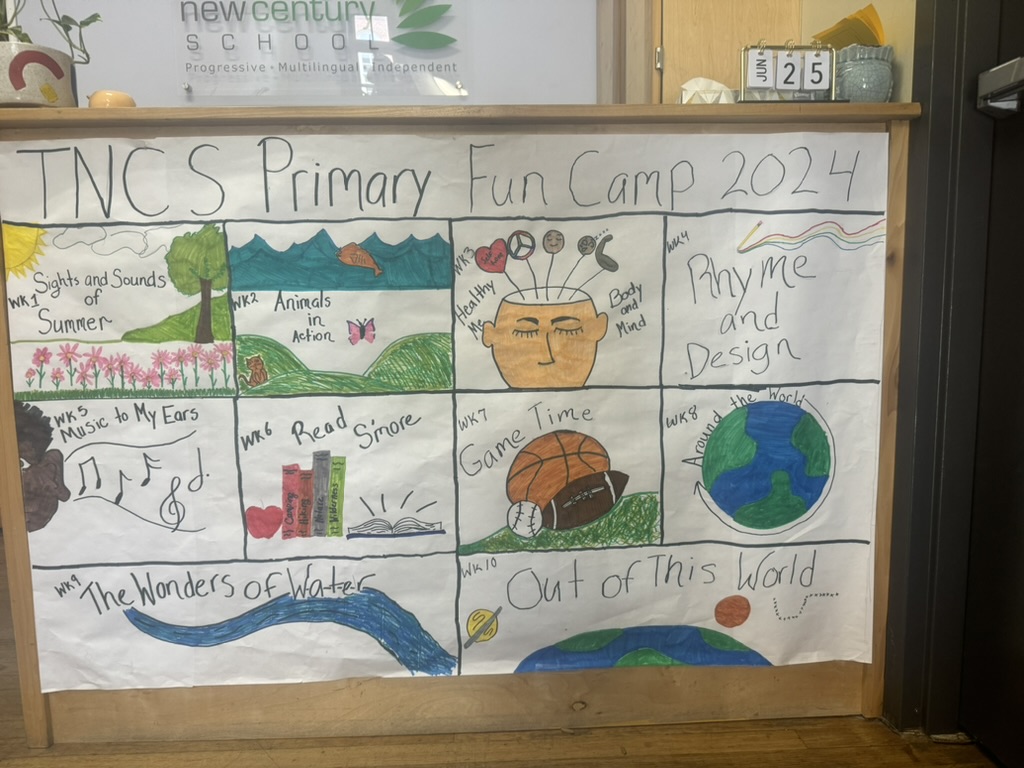 new century
SCHOOL
Progressive • Multilingual • Independent
JUN
2
5
TNCS Primary Fun Camp 2024
WK1
Sights and Sounds
of
Summer
WK2
Animals
in
Action
WK3
Healthy
Me
Body
and
Mind
WK4
Rhyme
and
Design
WK5
Music to My Ears
WK6
Read S'more
Camping
WK7
Game Time
WK8
Around the World
WK9
The Wonders of Water
WK10
Out of This World